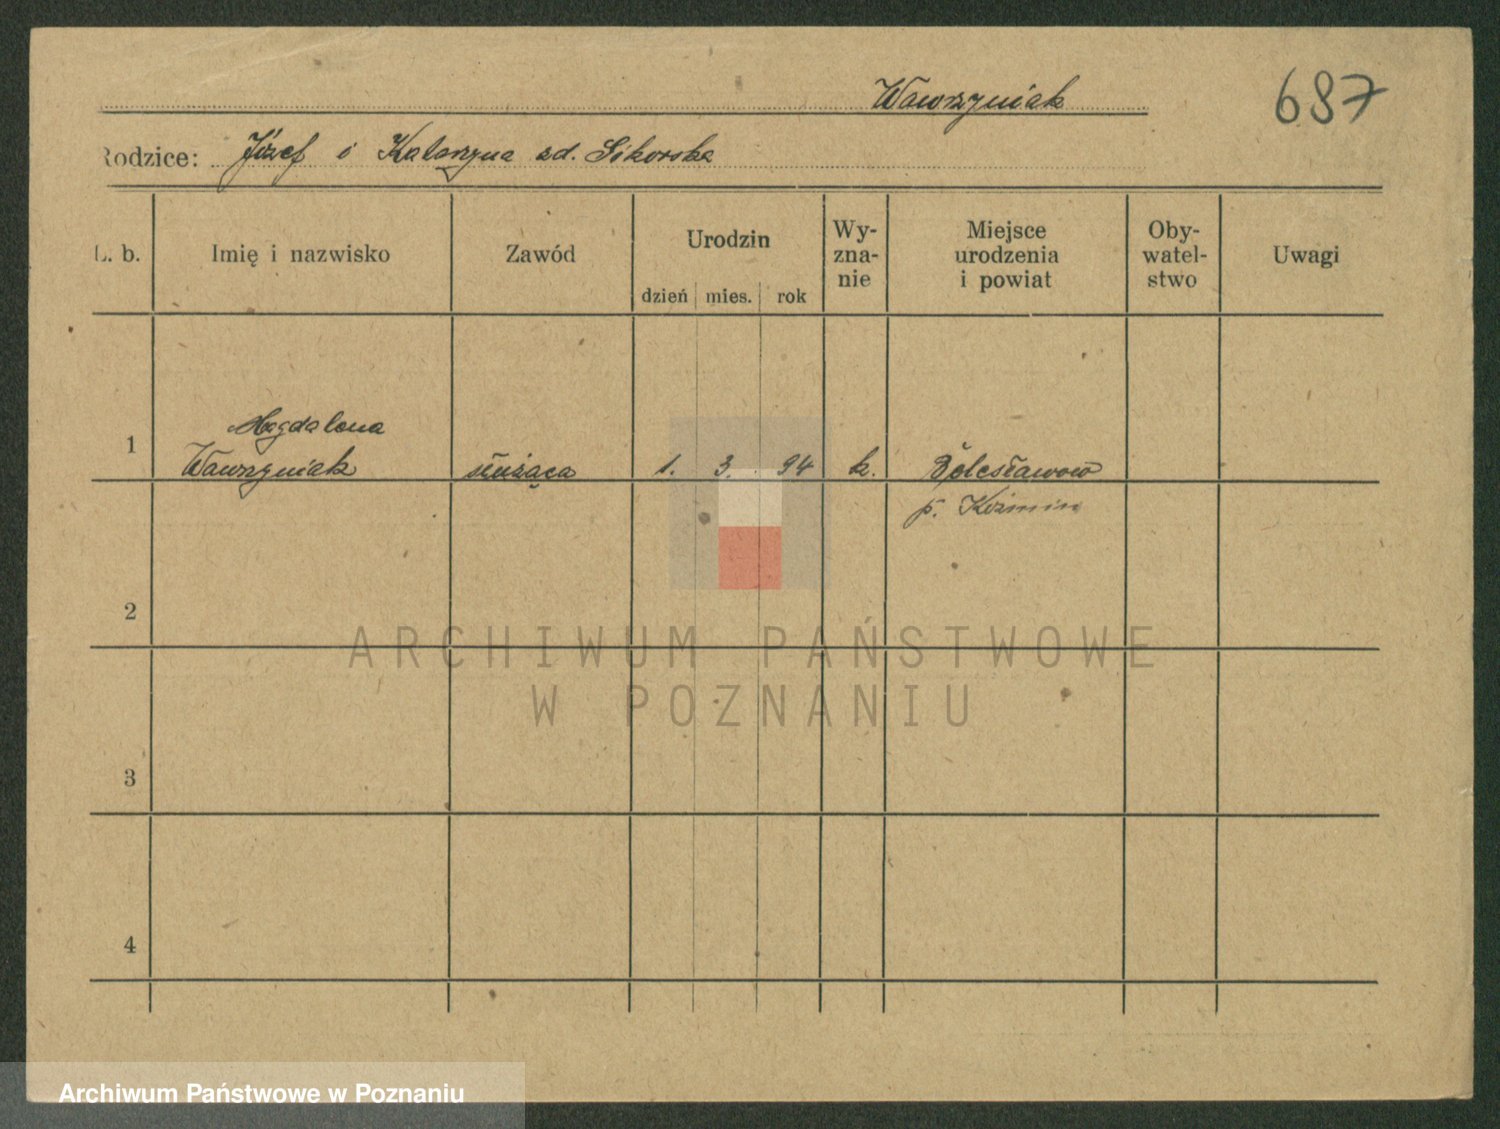 Wawrzyniak
687
Rodzice: Józef i Katarzyna zd. Sikorska
L. b.
Imię i nazwisko
Zawód
Urodzin
dzień mies. rok
Wy-
zna-
nie
Miejsce
urodzenia
i powiat
Oby-
watel-
stwo
Uwagi
1
Magdalena
Wawrzyniak
służąca
1. 3. 94
k.
Bolesławow
p. Koźmin
2
3
4
ARCHIWUM PAŃSTWOWE
W POZNANIU
Archiwum Państwowe w Poznaniu